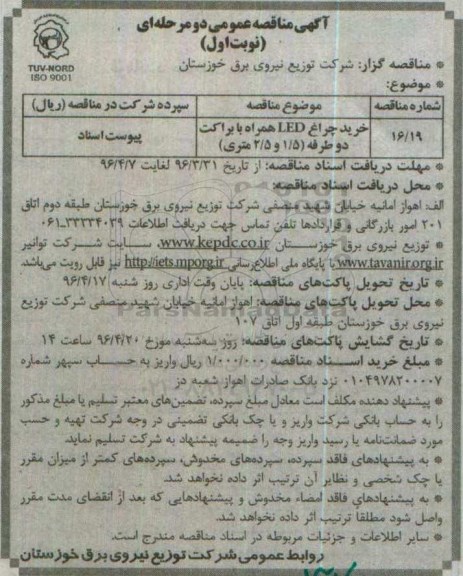 آگهی مناقصه عمومی دو مرحله‌ای
(نوبت اول)
TUV-NORD
ISO 9001
* مناقصه گزار: شرکت توزیع نیروی برق خوزستان
* موضوع:
شماره مناقصه	موضوع مناقصه	سپرده شرکت در مناقصه (ریال)
۱۶/۱۹	خرید چراغ LED همراه با براکت دو طرفه (۱/۵ و ۲/۵ متری)	پیوست اسناد
* مهلت دریافت اسناد مناقصه: از تاریخ ۹۶/۳/۳۱ لغایت ۹۶/۴/۷
* محل دریافت اسناد مناقصه:
الف: اهواز امانیه خیابان شهید منصفی شرکت توزیع نیروی برق خوزستان طبقه دوم اتاق
۲۰۱ امور بازرگانی و قراردادها تلفن تماس جهت دریافت اطلاعات ۳۳۳۳۴۰۳۹-۰۶۱
* توزیع نیروی برق خوزستان www.kepdc.co.ir، سایت شرکت توانیر
www.tavanir.org.ir یا پایگاه ملی اطلاع‌رسانی http://iets.mporg.ir نیز قابل رویت می‌باشد.
* تاریخ تحویل پاکت‌های مناقصه: پایان وقت اداری روز شنبه ۹۶/۴/۱۷
* محل تحویل پاکت‌های مناقصه: اهواز امانیه خیابان شهید منصفی شرکت توزیع
نیروی برق خوزستان طبقه اول اتاق ۱۰۷
* تاریخ گشایش پاکت‌های مناقصه: روز سه‌شنبه مورخ ۹۶/۴/۲۰ ساعت ۱۴
* مبلغ خرید اسناد مناقصه ۱/۰۰۰/۰۰۰ ریال واریز به حساب سپهر شماره
۰۱۰۴۹۷۸۲۰۰۰۰۷ نزد بانک صادرات اهواز شعبه دز
* پیشنهاد دهنده مکلف است معادل مبلغ سپرده، تضمین‌های معتبر تسلیم یا مبلغ مذکور
را به حساب بانکی شرکت واریز و یا چک بانکی تضمینی در وجه شرکت تهیه و حسب
مورد ضمانت‌نامه یا رسید واریز وجه را ضمیمه پیشنهاد به شرکت تسلیم نماید.
* به پیشنهادهای فاقد سپرده، سپرده‌های مخدوش، سپرده‌های کمتر از میزان مقرر
یا چک شخصی و نظایر آن ترتیب اثر داده نخواهد شد.
* به پیشنهادهای فاقد امضاء مخدوش و پیشنهادهایی که بعد از انقضای مدت مقرر
واصل شود مطلقا ترتیب اثر داده نخواهد شد.
* سایر اطلاعات و جزئیات مربوطه در اسناد مناقصه مندرج است.
روابط عمومی شرکت توزیع نیروی برق خوزستان